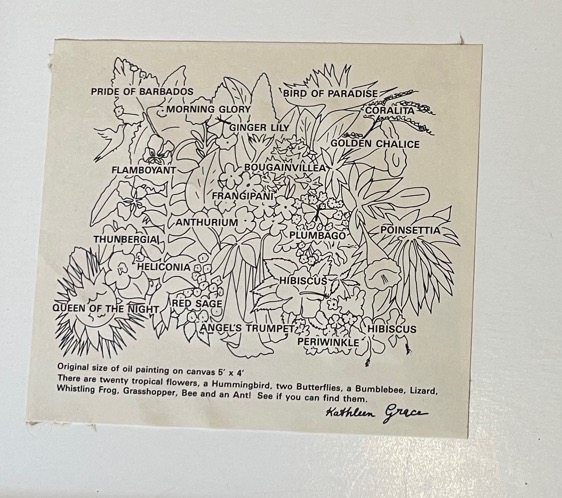 PRIDE OF BARBADOS
BIRD OF PARADISE
MORNING GLORY
CORALITA
GINGER LILY
GOLDEN CHALICE
FLAMBOYANT
BOUGAINVILLEA
FRANGIPANI
ANTHURIUM
PLUMBAGO
POINSETTIA
THUNBERGIA
HELICONIA
HIBISCUS
QUEEN OF THE NIGHT
RED SAGE
ANGEL'S TRUMPET
HIBISCUS
PERIWINKLE
Original size of oil painting on canvas 5' x 4'
There are twenty tropical flowers, a Hummingbird, two Butterflies, a Bumblebee, Lizard,
Whistling Frog, Grasshopper, Bee and an Ant! See if you can find them.
Kathleen Grace